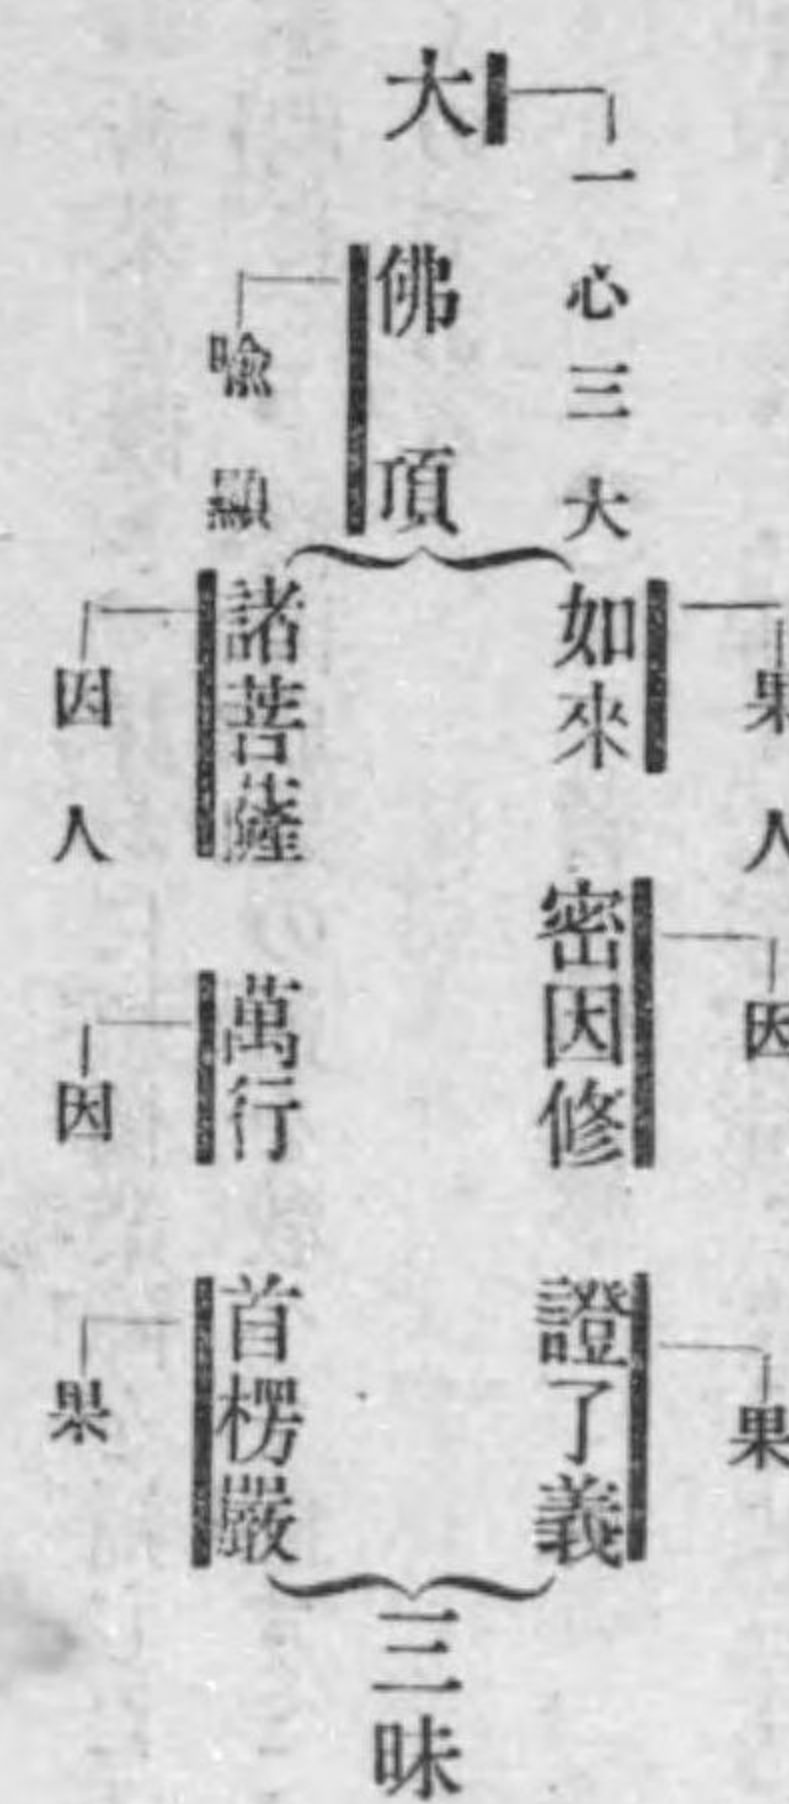 大
一心三大
佛頂
喩顯
如來
果人
密因修
因
證了義
果
諸菩薩
因人
萬行
因
首楞嚴
果
三昧